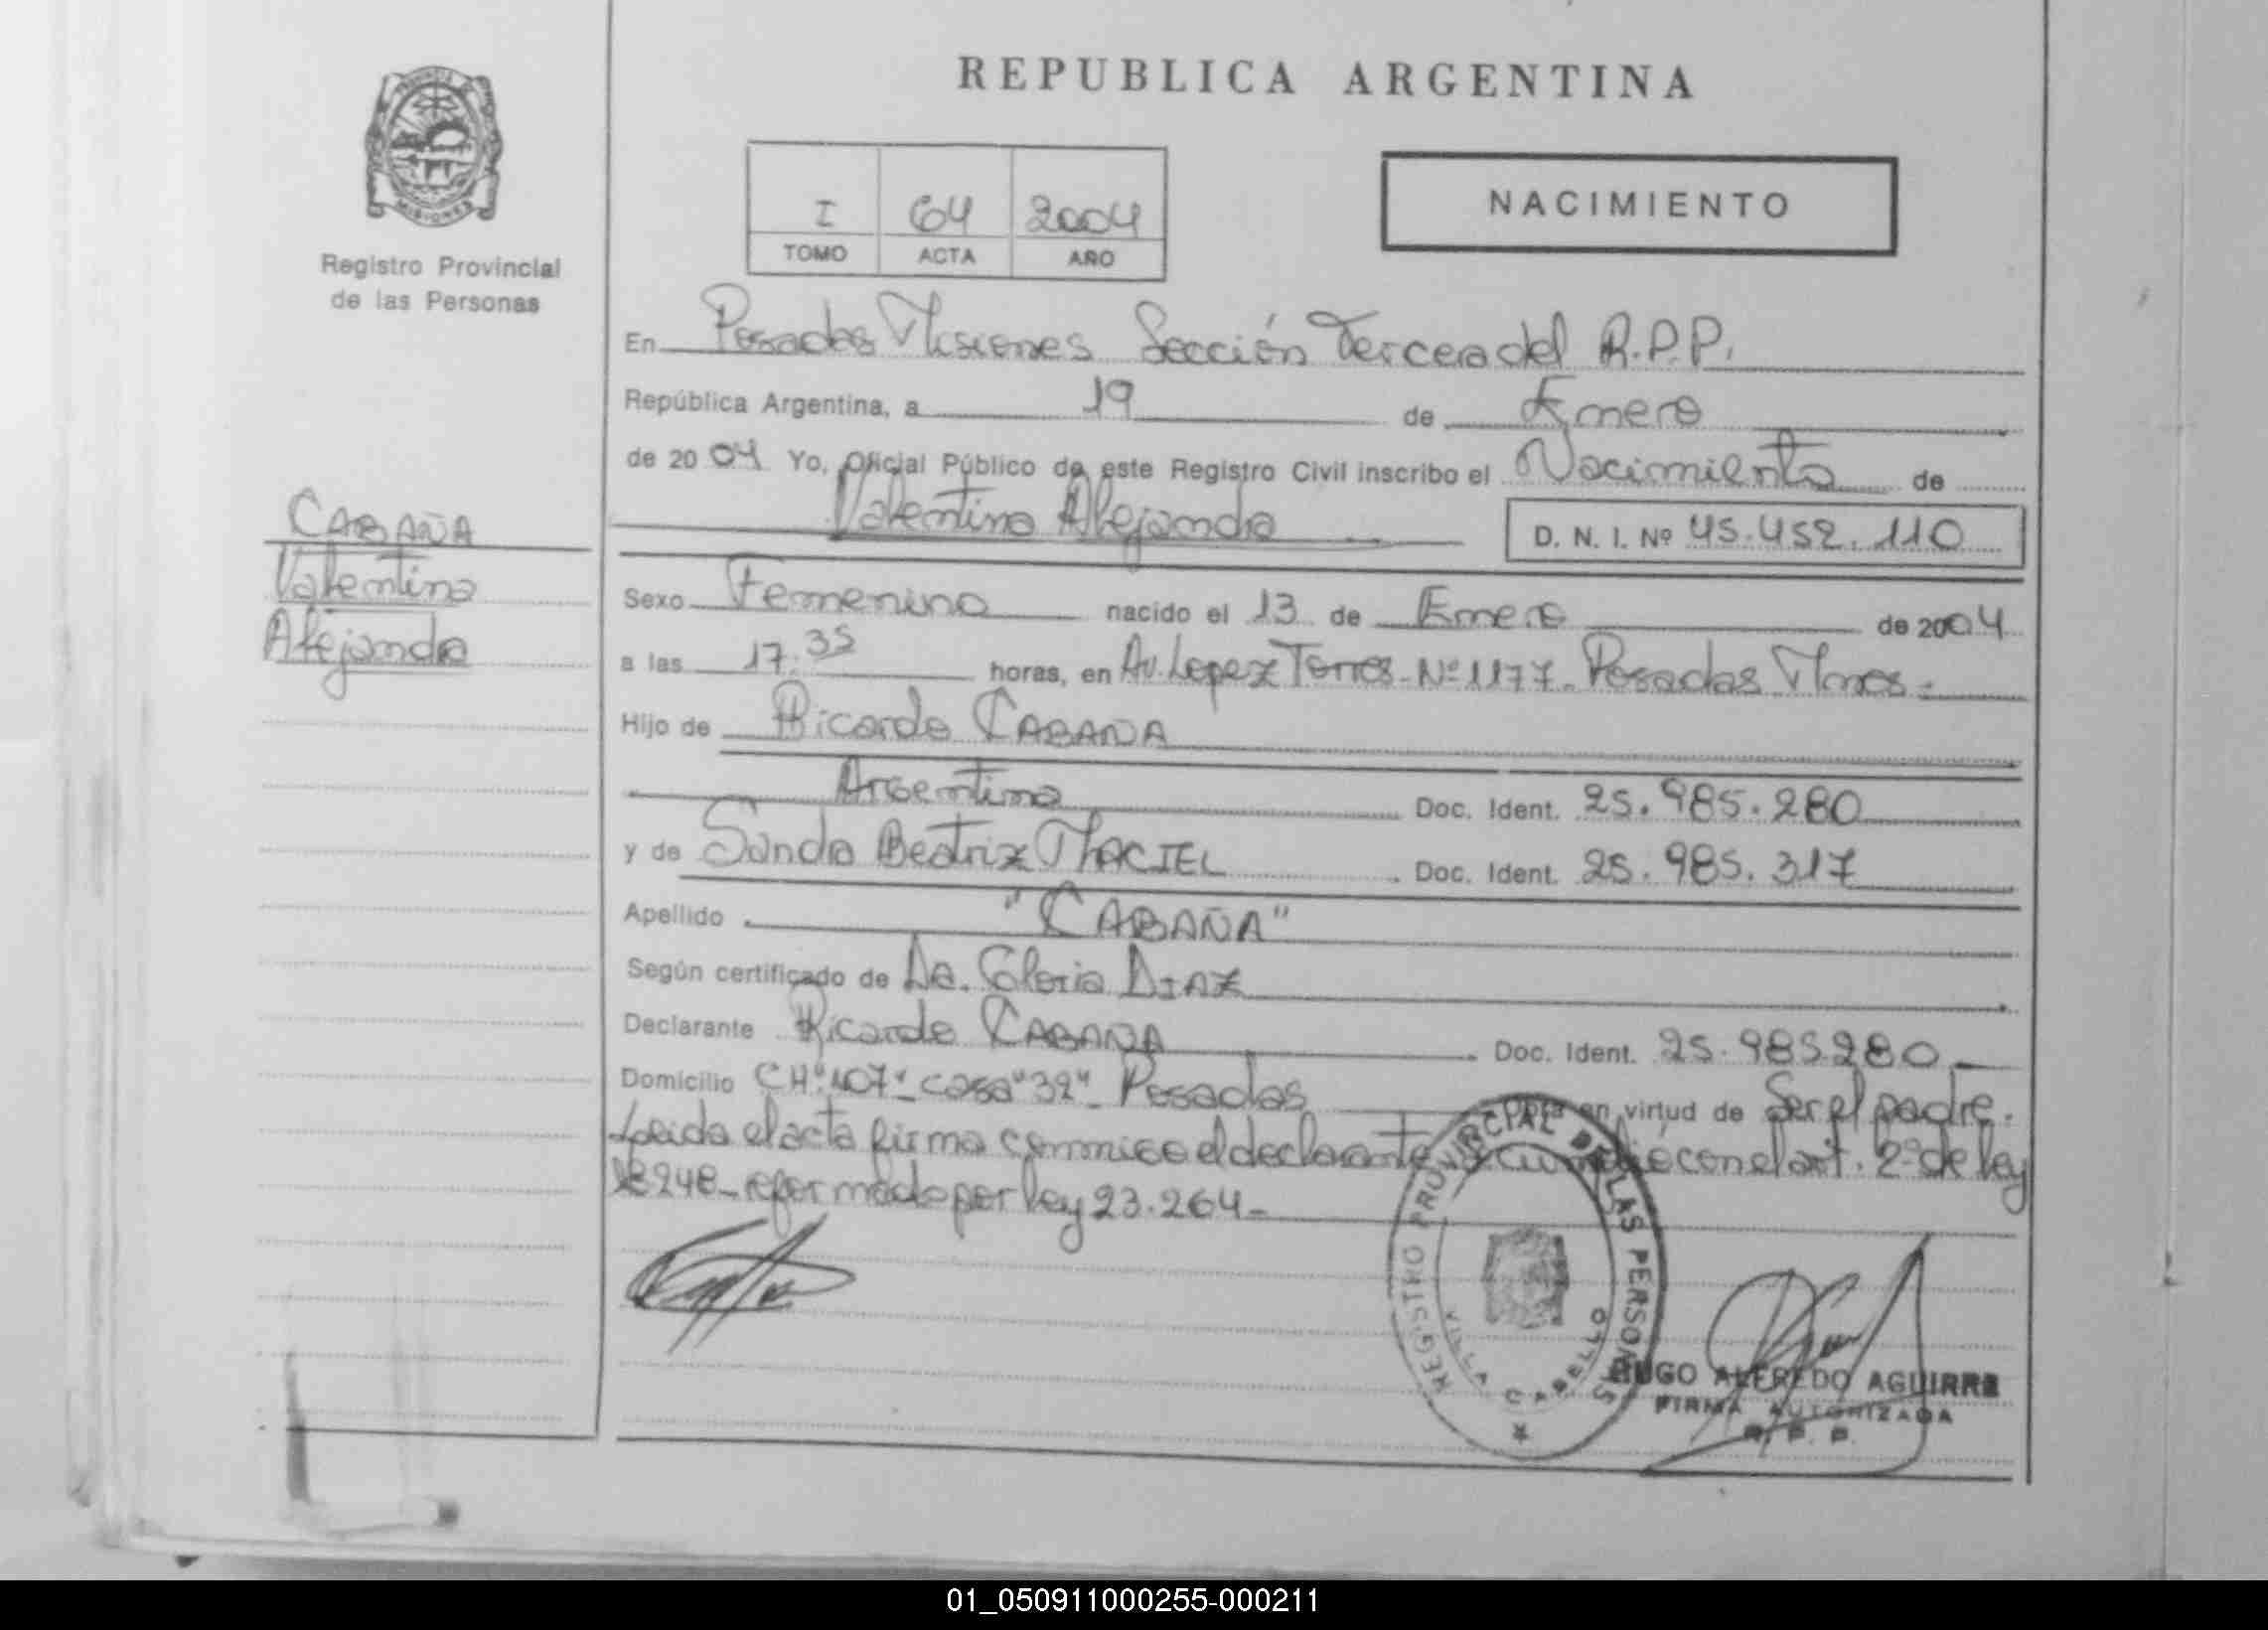 REPUBLICA ARGENTINA
PROVINCIA DE
MISIONES
Registro Provincial
de las Personas
I 64 2004
TOMO ACTA AÑO
NACIMIENTO
En Posadas Misiones Sección Tercera del R.P.P.
República Argentina, a 19 de Enero
de 2004 Yo, Oficial Público de este Registro Civil inscribo el Nacimiento de
Valentina Alejandra
D. N. I. Nº 45.452.110
CABAÑA
Valentina
Alejandra
Sexo Femenino nacido el 13 de Enero de 2004
a las 17.35 horas, en Av. Lopez Torres - Nº 1177 - Posadas Mnes -
Hijo de Ricardo CABAÑA
Argentina Doc. Ident. 25.985.280
y de Sandra Beatriz MACIEL Doc. Ident. 25.985.317
Apellido "CABAÑA"
Según certificado de Dra. Gloria DIAZ
Declarante Ricardo CABAÑA Doc. Ident. 25.985.280
Domicilio CH "107" - casa "32" - Posadas obra en virtud de Ser el padre.
Leida el acta firma conmigo el declarante. Se cumplió con el art. 2º de ley
18248 - reformado por ley 23.264 -
REGISTRO PROVINCIAL DE LAS PERSONAS
VILLA CABELLO
HUGO ALFREDO AGUIRRE
FIRMA AUTORIZADA
R. P. P.
01_050911000255-000211